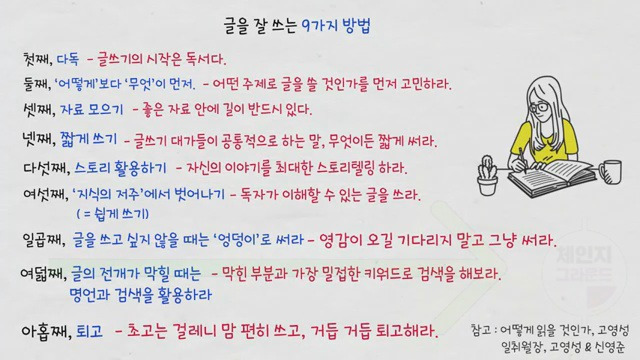 글을 잘 쓰는 9가지 방법
첫째, 다독 - 글쓰기의 시작은 독서다.
둘째, ‘어떻게’보다 ‘무엇’이 먼저. - 어떤 주제로 글을 쓸 것인가를 먼저 고민하라.
셋째, 자료 모으기 - 좋은 자료 안에 길이 반드시 있다.
넷째, 짧게 쓰기 - 글쓰기 대가들이 공통적으로 하는 말, 무엇이든 짧게 써라.
다섯째, 스토리 활용하기 - 자신의 이야기를 최대한 스토리텔링 하라.
여섯째, ‘지식의 저주’에서 벗어나기 - 독자가 이해할 수 있는 글을 쓰라.
( = 쉽게 쓰기)
일곱째, 글을 쓰고 싶지 않을 때는 ‘엉덩이’로 써라 - 영감이 오길 기다리지 말고 그냥 써라.
여덟째, 글의 전개가 막힐 때는 - 막힌 부분과 가장 밀접한 키워드로 검색을 해보라.
명언과 검색을 활용하라
아홉째, 퇴고 - 초고는 걸레니 맘 편히 쓰고, 거듭 거듭 퇴고해라.
참고 : 어떻게 읽을 것인가, 고영성
일취월장, 고영성 & 신영준
체인지
그라운드